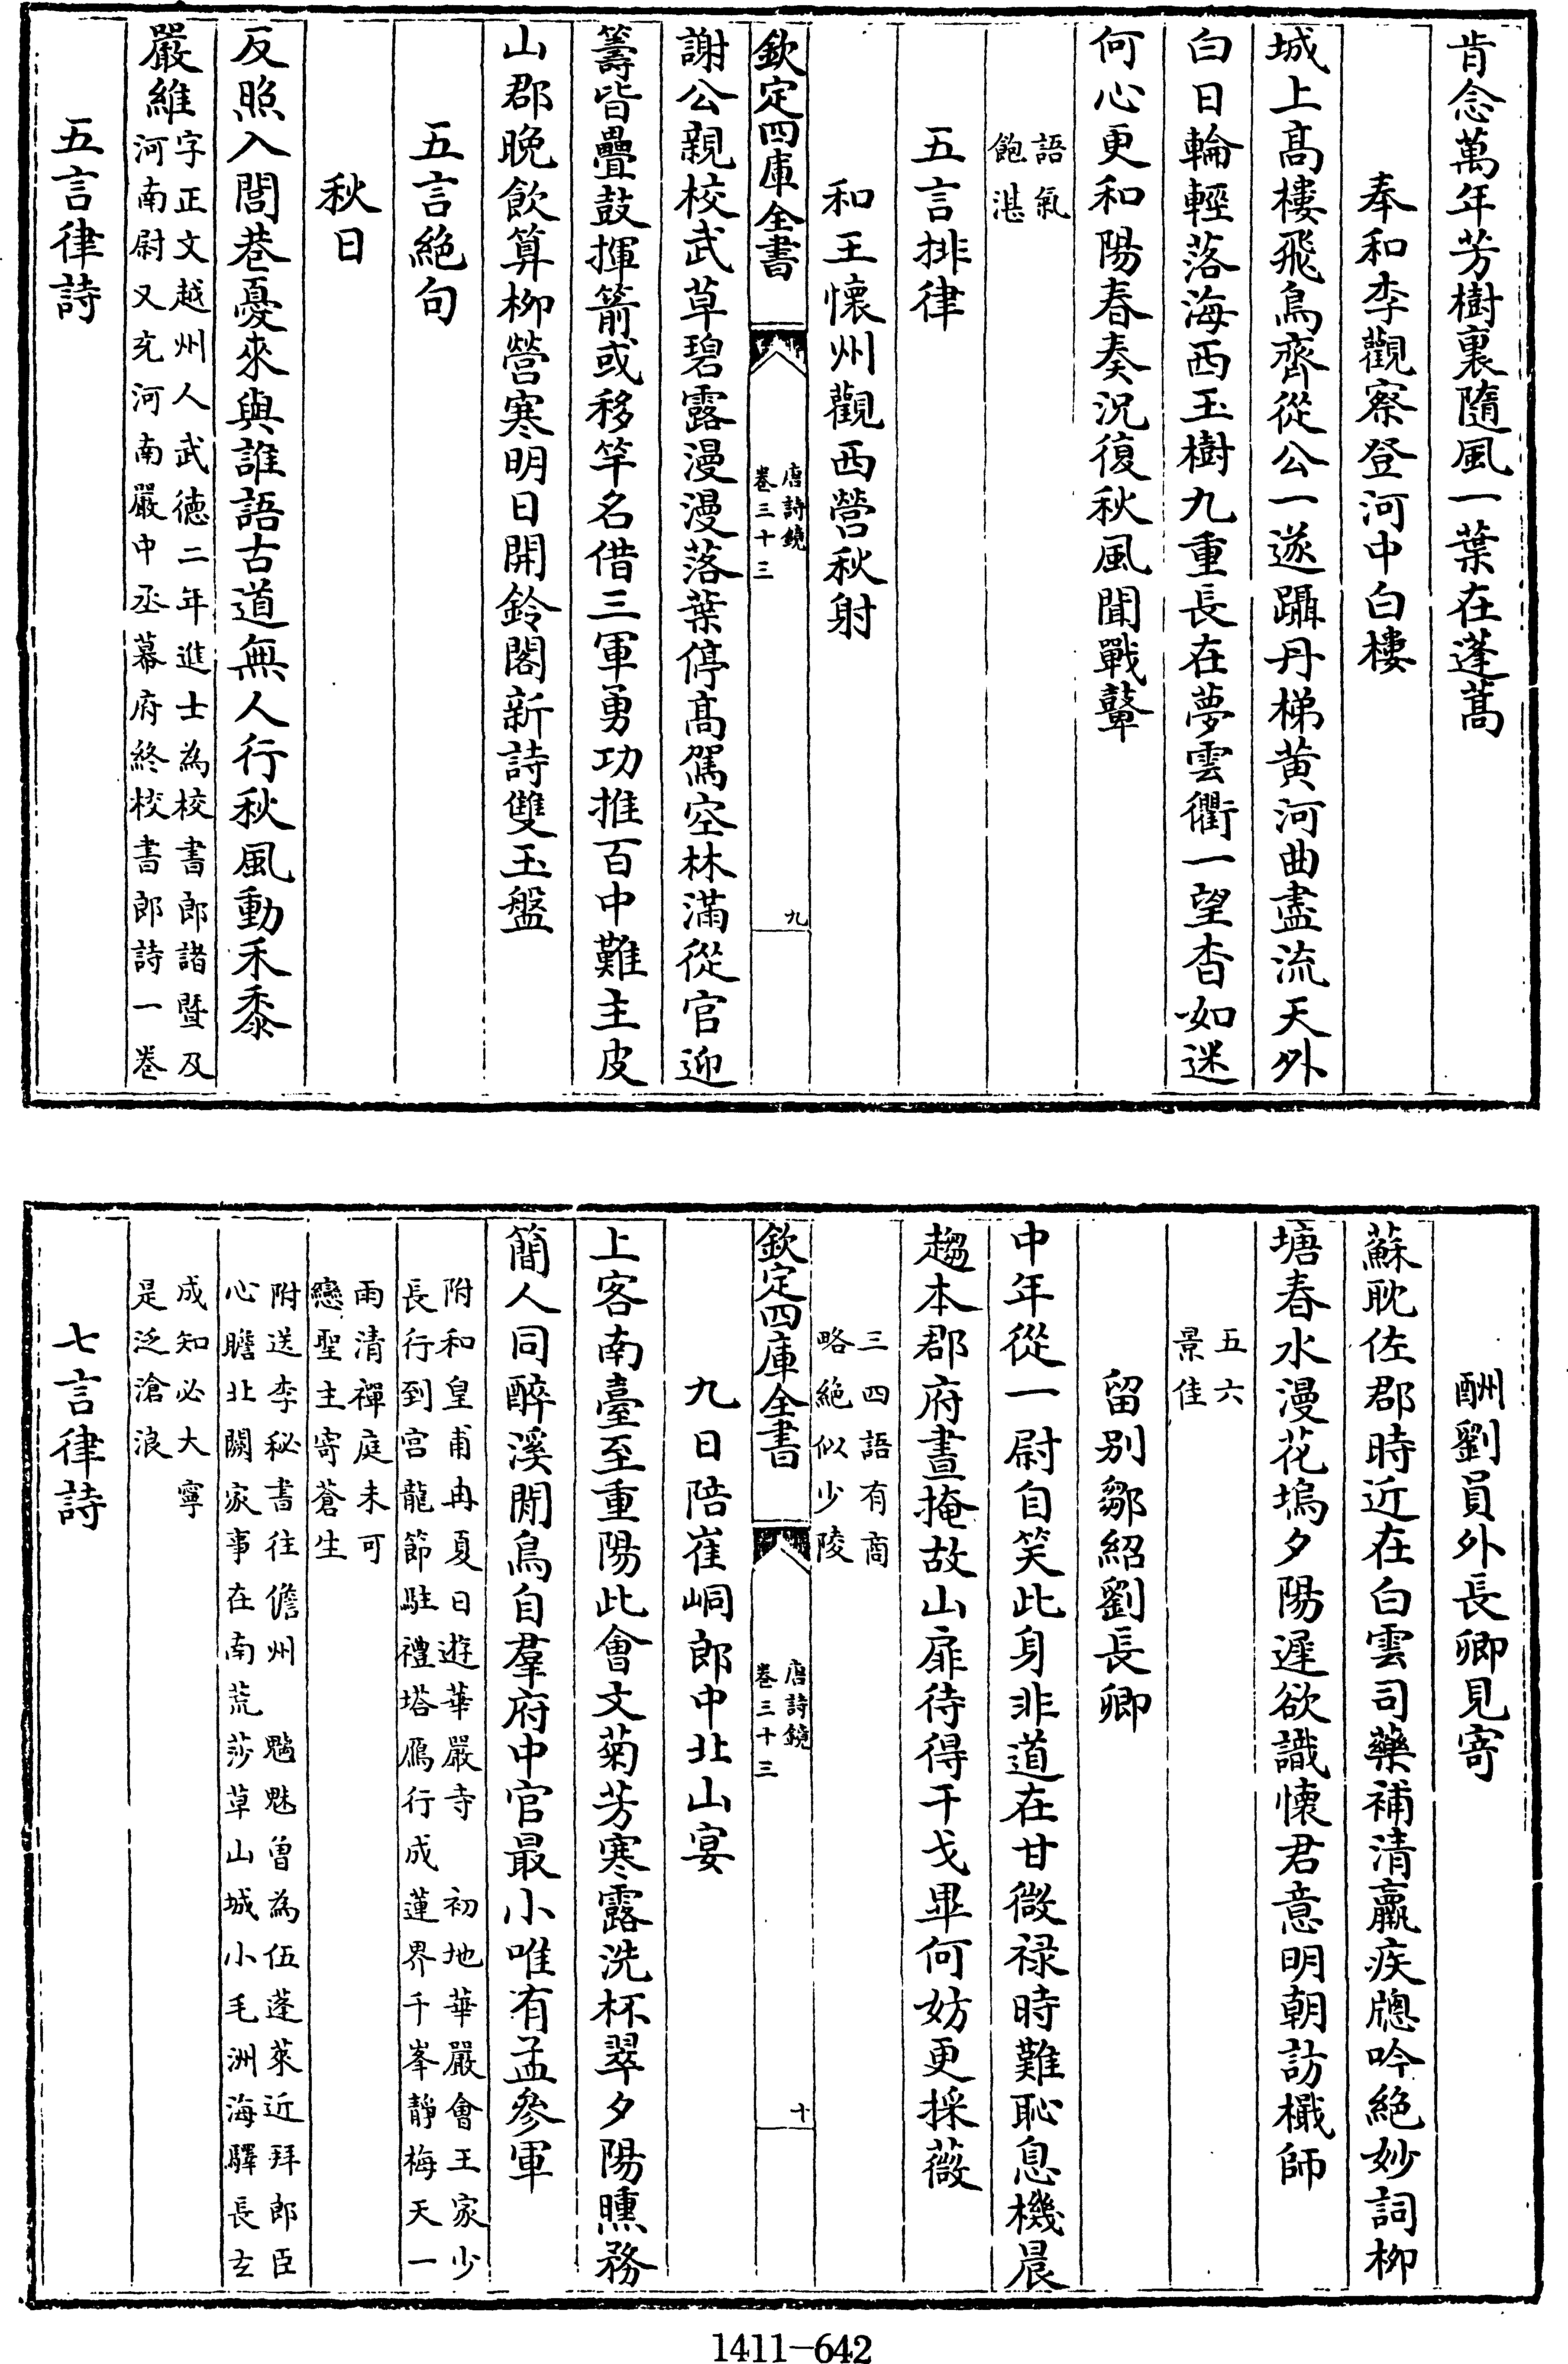 肯念萬年芳樹裏隨風一葉在蓬蒿
奉和李觀察登河中白樓
城上高樓飛鳥齊從公一遂躡丹梯黄河曲盡流天外
白日輪輕落海西玉樹九重長在夢雲衢一望杳如迷
何心更和陽春奏況復秋風聞戰鼙
語氣
飽湛
五言排律
和王懷州觀西營秋射
欽定四庫全書
唐詩鏡
卷三十三
九
謝公親校武草碧露漫漫落葉停高駕空林滿從官迎
籌皆疊鼓揮箭或移竿名借三軍勇功推百中難主皮
山郡晚飲算柳營寒明日開鈴閣新詩雙玉盤
五言絶句
秋日
反照入閭巷憂來與誰語古道無人行秋風動禾黍
嚴維
字正文越州人武徳二年進士為校書郎諸暨及
河南尉又充河南嚴中丞幕府終校書郎詩一卷
五言律詩
酬劉員外長卿見寄
蘇耽佐郡時近在白雲司藥補清羸疾牕吟絶妙詞柳
塘春水漫花塢夕陽遲欲識懐君意明朝訪檝師
五六
景佳
留别鄒紹劉長卿
中年從一尉自笑此身非道在甘微禄時難恥息機晨
趨本郡府晝掩故山扉待得干戈畢何妨更採薇
三四語有商
略絶似少陵
欽定四庫全書
唐詩鏡
卷三十三
十
九日陪崔峒郎中北山宴
上客南臺至重陽此會文菊芳寒露洗杯翠夕陽曛務
簡人同醉溪閒鳥自羣府中官最小唯有孟參軍
附和皇甫冉夏日遊華嚴寺 初地華嚴會王家少
長行到宫龍節駐禮塔鴈行成蓮界千峯靜梅天一
雨清禪庭未可
戀聖主寄蒼生
附送李秘書往儋州 魑魅曾為伍蓬萊近拜郎臣
心瞻北闕家事在南荒莎草山城小毛洲海驛長玄
成知必大寧
是泛滄浪
七言律詩
1411-642